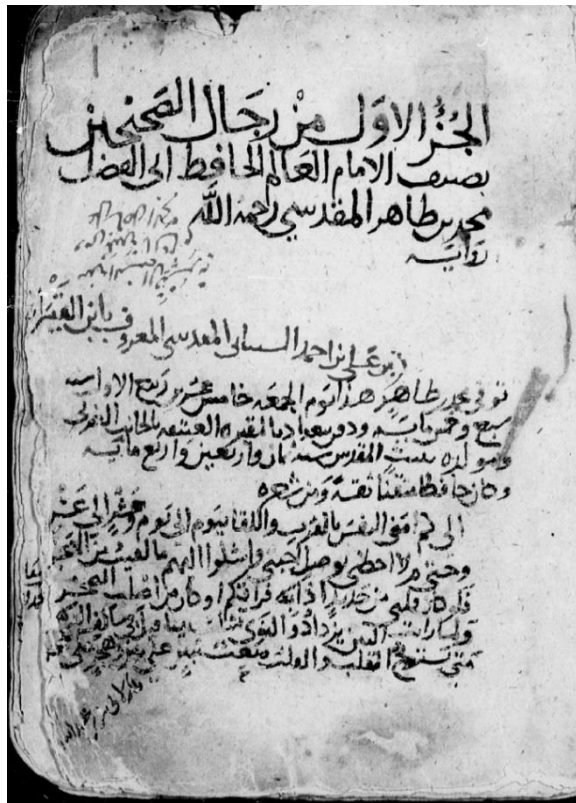 الجزء الاول من رجال الصحيحين
تصنيف الامام العالم الحافظ ابى الفضل
محمد بن طاهر المقدسي رحمه الله
رواية
بن على بن احمد الشيبانى المقدسى المعروف بابن القيسرانى
توفى محمد بن طاهر هذا يوم الجمعه خامس عشر ربيع الاول سنه
سبع وخمس مايه ودفن ببغداد بالمقبره العتيقه بالجانب الغربى
ومولده ببيت المقدس سنه ثمان واربعين واربع مايه
وكان حافظا متقنا ثقة ومن شعره
الى كم امنى النفس بالقرب واللقا بيوم الى يوم وعشر الى عشر
وحتى م لا احظى بوصل احبتى واشكوا اليهم ما لقيت من الهجر
فلو كان قلبى من حديد اذابه فراقكم او كان من اصلب الصخر
ولما رايت البين يزداد والنوى تمثلت بيتا
متى يستريح القلب والقلب متعب ببين على بين وهجر على هجر